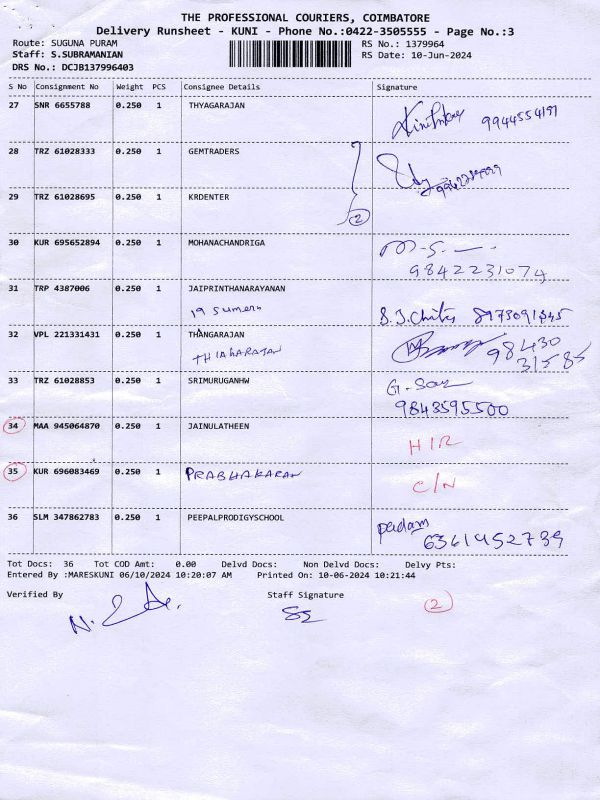 THE PROFESSIONAL COURIERS, COIMBATORE
Delivery Runsheet - KUNI - Phone No.:0422-3505555 - Page No.:3
Route: SUGUNA PURAM RS No.: 1379964
Staff: S.SUBRAMANIAN RS Date: 10-Jun-2024
DRS No.: DCJB137996403
S No Consignment No Weight PCS Consignee Details Signature
27 SNR 6655788 0.250 1 THYAGARAJAN 9944554197
28 TRZ 61028333 0.250 1 GEMTRADERS
29 TRZ 61028695 0.250 1 KRDENTER
2
30 KUR 695652894 0.250 1 MOHANACHANDRIGA M-S
9842231074
31 TRP 4387006 0.250 1 JAIPRINTHANARAYANAN
19 Sumeru S.J.Chitra 8973091845
32 VPL 221331431 0.250 1 THANGARAJAN
THIAGARAJAN 98430
31585
33 TRZ 61028853 0.250 1 SRIMURUGANHW G. Sar
9843595500
34 MAA 945064870 0.250 1 JAINULATHEEN
HIR
35 KUR 696083469 0.250 1 PRABHAKARAN
C/N
36 SLM 347862783 0.250 1 PEEPALPRODIGYSCHOOL Padam
6361452739
Tot Docs: 36 Tot COD Amt: 0.00 Delvd Docs: Non Delvd Docs: Delvy Pts:
Entered By :MARESKUNI 06/10/2024 10:20:07 AM Printed On: 10-06-2024 10:21:44
Verified By Staff Signature
2